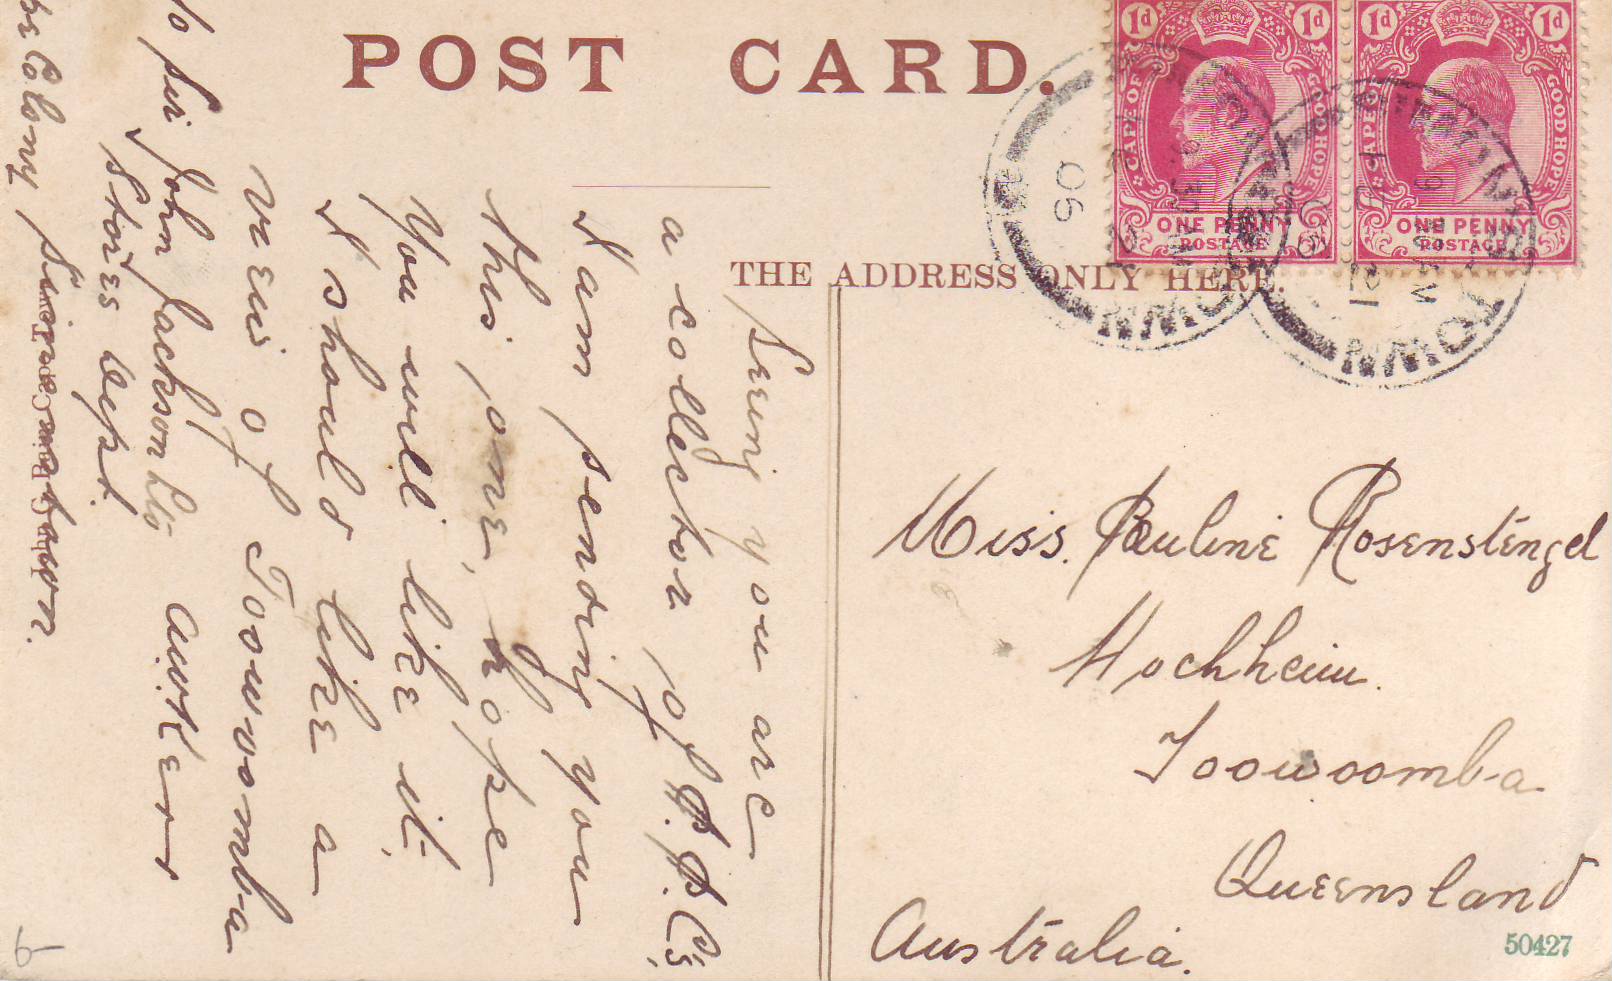 POST CARD.
THE ADDRESS ONLY HERE.
1d 1d
CAPE OF GOOD HOPE
ONE PENNY
POSTAGE
1d 1d
CAPE OF GOOD HOPE
ONE PENNY
POSTAGE
TOWN
06
TOWN
Seeing you are
a collector of P.P.C's,
I am sending you
this one, hope
you will like it.
I should like a
view of Toowoomba
Stores Dept
Sir John Jackson Ltd
Colony Simonstown.
Miss. Pauline Rosenstengel
Hochheim.
Toowoomba
Queensland
Australia.
50427